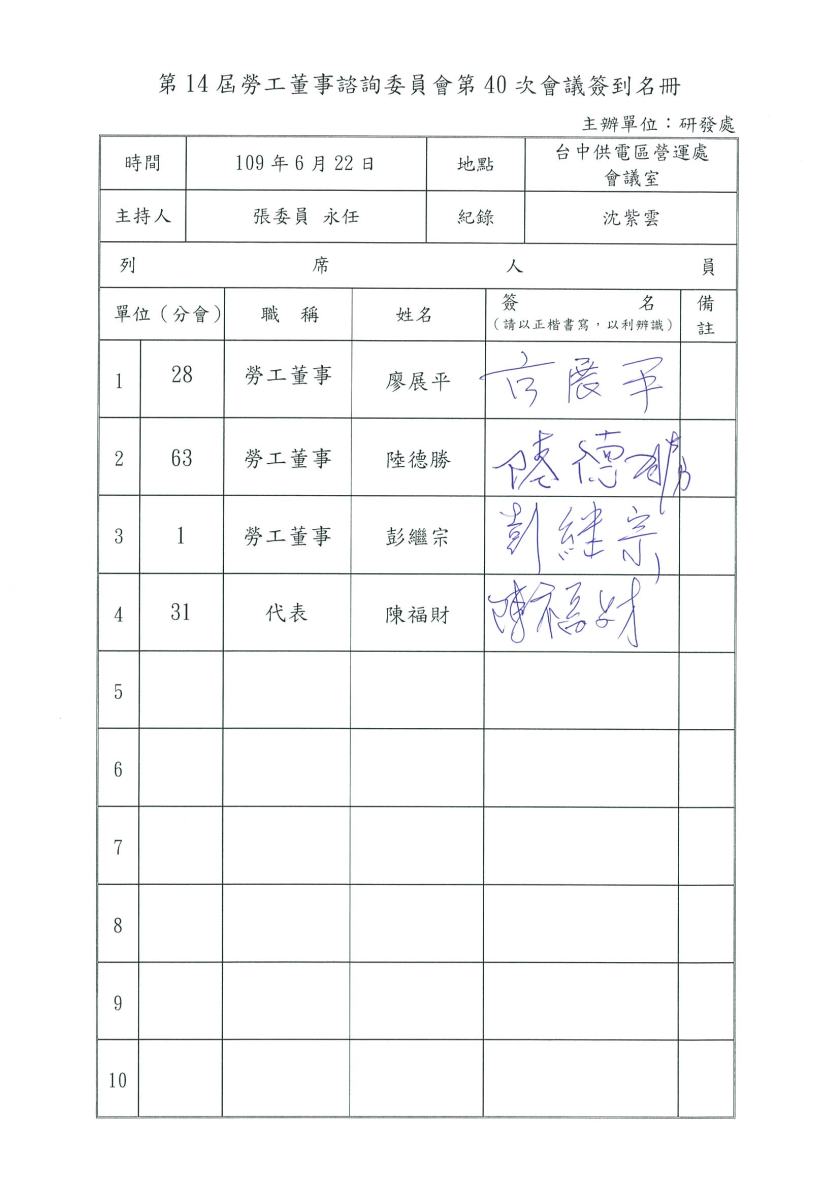 第14屆勞工董事諮詢委員會第40次會議簽到名冊
主辦單位：研發處
時間 109年6月22日 地點 台中供電區營運處
會議室
主持人 張委員 永任 紀錄 沈紫雲
列 席 人 員
單位（分會） 職 稱 姓名 簽 名 備
（請以正楷書寫，以利辨識） 註
1 28 勞工董事 廖展平 展平
2 63 勞工董事 陸德勝 陸德勝
3 1 勞工董事 彭繼宗 彭継宗
4 31 代表 陳福財 陳福財
5
6
7
8
9
10